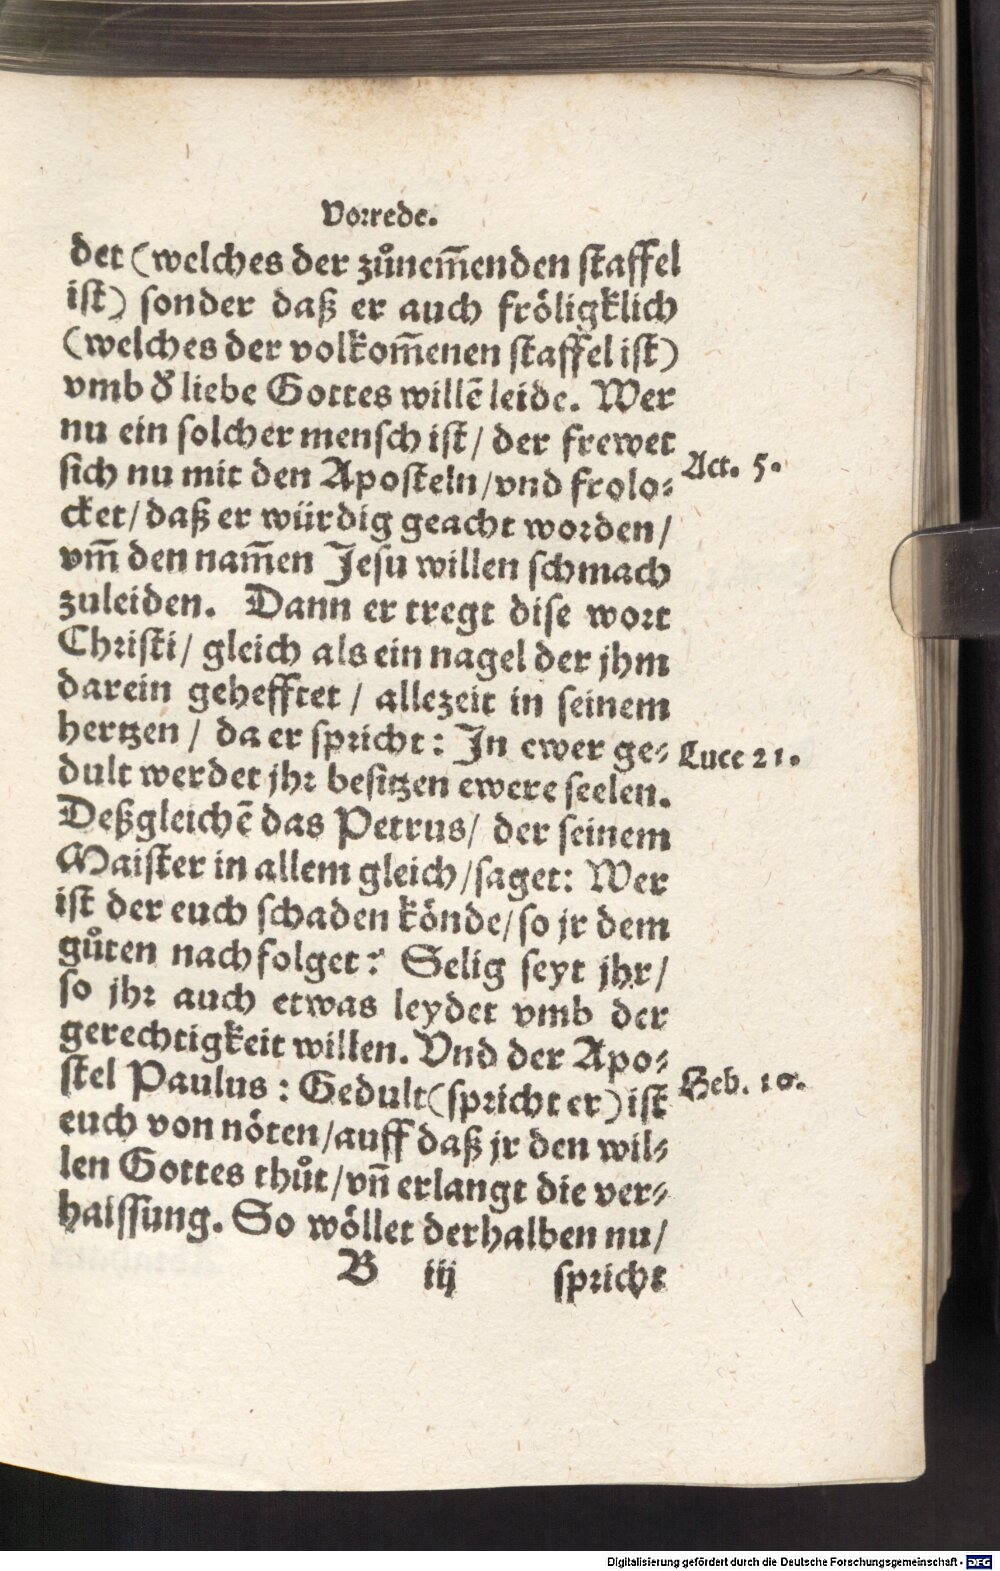 Vorrede.
det (welches der zůnem̃enden staffel
ist) sonder daß er auch fröligklich
(welches der volkom̃enen staffel ist)
vmb d᷑ liebe Gottes willẽ leide. Wer
nu ein solcher mensch ist / der frewet
sich nu mit den Aposteln / vnd frolo⸗
Act. 5.
cket / daß er würdig geacht worden /
vm̃ den nam̃en Jesu willen schmach
zuleiden. Dann er tregt dise wort
Christi / gleich als ein nagel der jhm
darein gehefftet / allezeit in seinem
hertzen / da er spricht: In ewer ge⸗
Luce 21.
dult werdet jhr besitzen ewere seelen.
Deßgleichẽ das Petrus / der seinem
Maister in allem gleich / saget: Wer
ist der euch schaden könde / so jr dem
gůten nachfolget? Selig seyt jhr /
so jhr auch etwas leydet vmb der
gerechtigkeit willen. Vnd der Apo⸗
stel Paulus: Gedult (spricht er) ist
Heb. 10.
euch von nöten / auff daß jr den wil⸗
len Gottes thůt / vñ erlangt die ver⸗
haissung. So wöllet derhalben nu /
B iij spricht
Digitalisierung gefördert durch die Deutsche Forschungsgemeinschaft - DFG